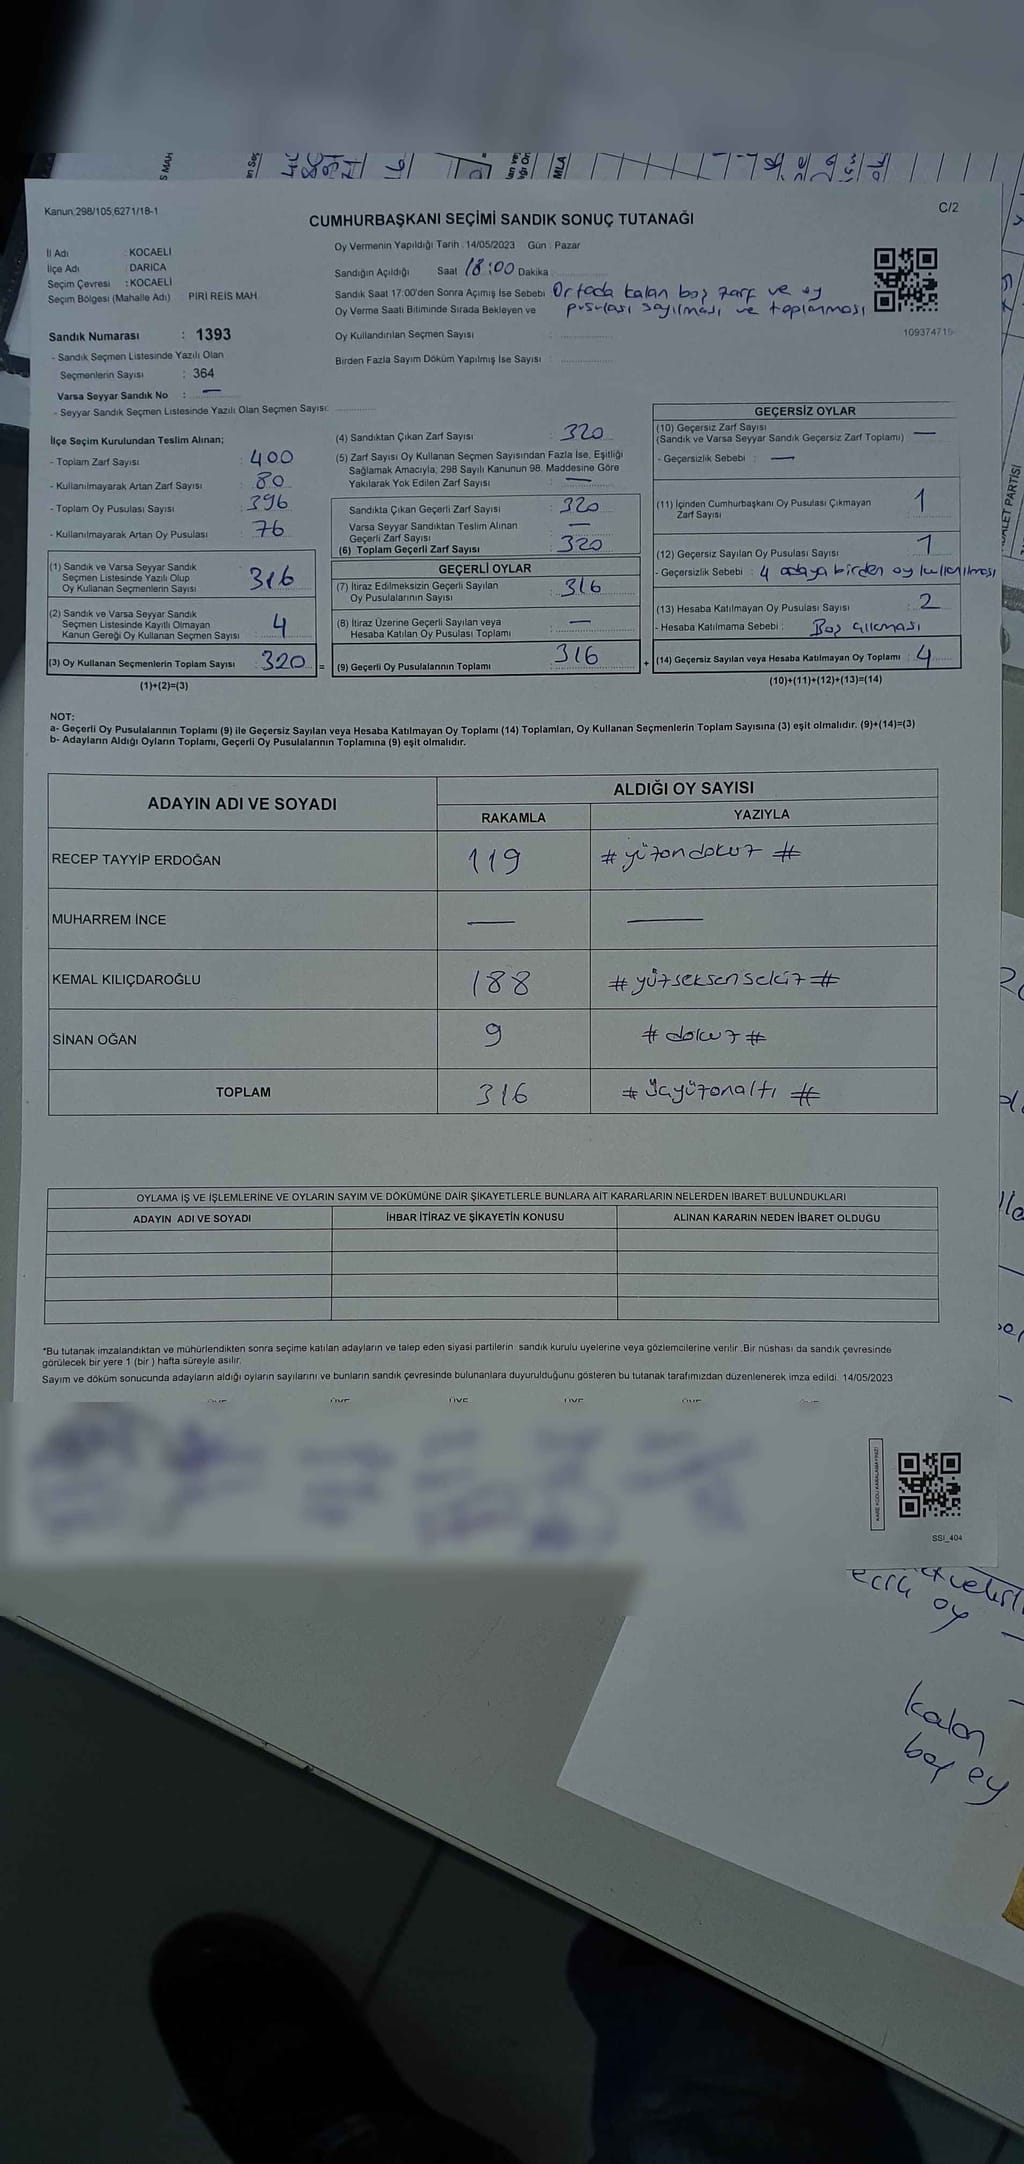 Kanun:298/105,6271/18-1
C/2
CUMHURBAŞKANI SEÇİMİ SANDIK SONUÇ TUTANAĞI
İl Adı : KOCAELİ
İlçe Adı : DARICA
Seçim Çevresi : KOCAELİ
Seçim Bölgesi (Mahalle Adı) PİRİ REİS MAH.
Oy Vermenin Yapıldığı Tarih : 14/05/2023 Gün : Pazar
Sandığın Açıldığı Saat 18:00 Dakika
Sandık Saat 17:00'den Sonra Açımış İse Sebebi Ortada kalan boş zarf ve oy
Oy Verme Saati Bitiminde Sırada Bekleyen ve pusulası sayılması ve toplanması
Oy Kullandırılan Seçmen Sayısı :
Birden Fazla Sayım Döküm Yapılmış İse Sayısı :
109374716
Sandık Numarası : 1393
- Sandık Seçmen Listesinde Yazılı Olan
Seçmenlerin Sayısı : 364
Varsa Seyyar Sandık No : —
- Seyyar Sandık Seçmen Listesinde Yazılı Olan Seçmen Sayısı:
İlçe Seçim Kurulundan Teslim Alınan;
- Toplam Zarf Sayısı : 400
- Kullanılmayarak Artan Zarf Sayısı : 80
- Toplam Oy Pusulası Sayısı : 396
- Kullanılmayarak Artan Oy Pusulası : 76
(1) Sandık ve Varsa Seyyar Sandık
Seçmen Listesinde Yazılı Olup
Oy Kullanan Seçmenlerin Sayısı : 316
(2) Sandık ve Varsa Seyyar Sandık
Seçmen Listesinde Kayıtlı Olmayan
Kanun Gereği Oy Kullanan Seçmen Sayısı : 4
(3) Oy Kullanan Seçmenlerin Toplam Sayısı : 320 =
(1)+(2)=(3)
(4) Sandıktan Çıkan Zarf Sayısı : 320
(5) Zarf Sayısı Oy Kullanan Seçmen Sayısından Fazla İse, Eşitliği
Sağlamak Amacıyla; 298 Sayılı Kanunun 98. Maddesine Göre
Yakılarak Yok Edilen Zarf Sayısı : —
Sandıkta Çıkan Geçerli Zarf Sayısı : 320
Varsa Seyyar Sandıktan Teslim Alınan
Geçerli Zarf Sayısı : —
(6) Toplam Geçerli Zarf Sayısı : 320
GEÇERLİ OYLAR
(7) İtiraz Edilmeksizin Geçerli Sayılan
Oy Pusulalarının Sayısı : 316
(8) İtiraz Üzerine Geçerli Sayılan veya
Hesaba Katılan Oy Pusulası Toplamı : —
(9) Geçerli Oy Pusulalarının Toplamı : 316 +
GEÇERSİZ OYLAR
(10) Geçersiz Zarf Sayısı
(Sandık ve Varsa Seyyar Sandık Geçersiz Zarf Toplamı) —
- Geçersizlik Sebebi : —
(11) İçinden Cumhurbaşkanı Oy Pusulası Çıkmayan
Zarf Sayısı 1
(12) Geçersiz Sayılan Oy Pusulası Sayısı 1
- Geçersizlik Sebebi : 4 adaya birden oy kullanılması
(13) Hesaba Katılmayan Oy Pusulası Sayısı 2
- Hesaba Katılmama Sebebi : Boş çıkması
(14) Geçersiz Sayılan veya Hesaba Katılmayan Oy Toplamı : 4
(10)+(11)+(12)+(13)=(14)
NOT:
a- Geçerli Oy Pusulalarının Toplamı (9) ile Geçersiz Sayılan veya Hesaba Katılmayan Oy Toplamı (14) Toplamları, Oy Kullanan Seçmenlerin Toplam Sayısına (3) eşit olmalıdır. (9)+(14)=(3)
b- Adayların Aldığı Oyların Toplamı, Geçerli Oy Pusulalarının Toplamına (9) eşit olmalıdır.
ADAYIN ADI VE SOYADI
ALDIĞI OY SAYISI
RAKAMLA YAZIYLA
RECEP TAYYİP ERDOĞAN 119 # yüzondokuz #
MUHARREM İNCE — —
KEMAL KILIÇDAROĞLU 188 # yüzseksensekiz #
SİNAN OĞAN 9 # dokuz #
TOPLAM 316 # üçyüzonaltı #
OYLAMA İŞ VE İŞLEMLERİNE VE OYLARIN SAYIM VE DÖKÜMÜNE DAİR ŞİKAYETLERLE BUNLARA AİT KARARLARIN NELERDEN İBARET BULUNDUKLARI
ADAYIN ADI VE SOYADI İHBAR İTİRAZ VE ŞİKAYETİN KONUSU ALINAN KARARIN NEDEN İBARET OLDUĞU
*Bu tutanak imzalandıktan ve mühürlendikten sonra seçime katılan adayların ve talep eden siyasi partilerin sandık kurulu üyelerine veya gözlemcilerine verilir .Bir nüshası da sandık çevresinde
görülecek bir yere 1 (bir ) hafta süreyle asılır.
Sayım ve döküm sonucunda adayların aldığı oyların sayılarını ve bunların sandık çevresinde bulunanlara duyurulduğunu gösteren bu tutanak tarafımızdan düzenlenerek imza edildi. 14/05/2023
SSI_404
oy
kalan
boş oy